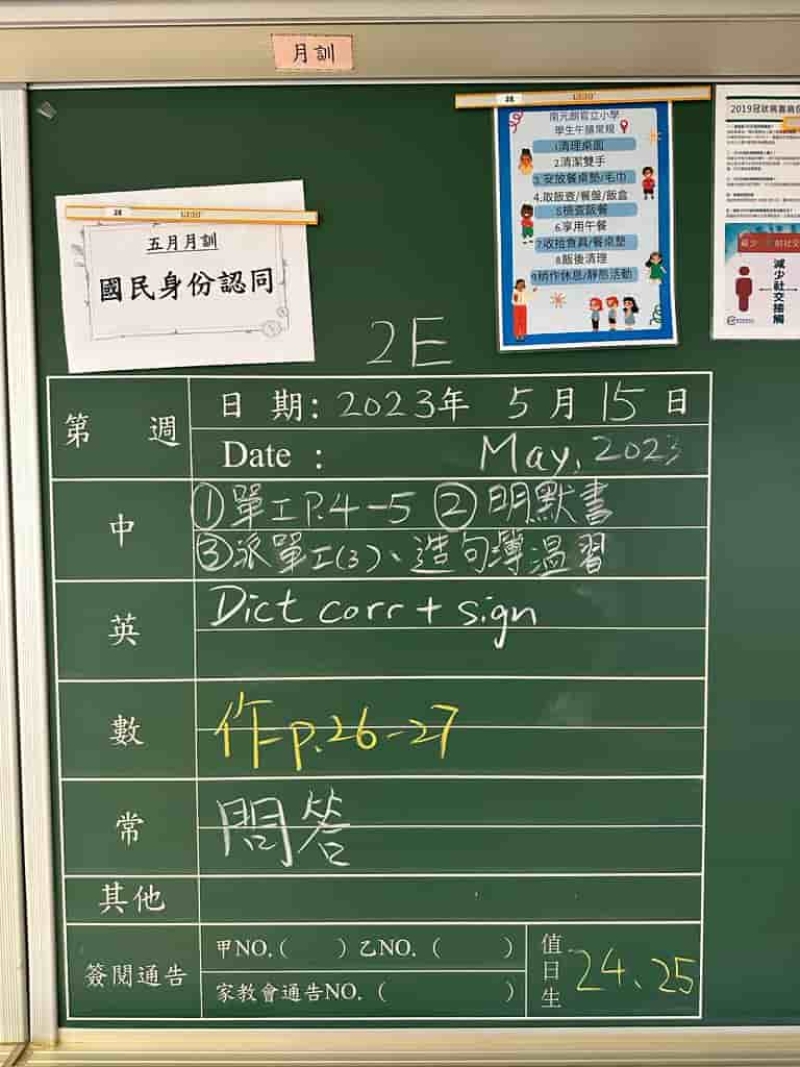 月訓
五月月訓
國民身份認同
南元朗官立小學
學生午膳常規
1.清理桌面
2.清潔雙手
3.安放餐桌墊/毛巾
4.取飯壺/餐盤/飯盒
5.檢查飯餐
6.享用午餐
7.收拾食具/餐桌墊
8.飯後清理
9.稍作休息/靜態活動
2019冠狀病毒病
減少社交接觸
2E
第 週
日 期: 2023年 5月 15日
Date : May, 2023
中
①單工P.4-5 ②明默書
③派單工(3)、造句簿溫習
英
Dict corr + sign
數
作p.26-27
常
問答
其他
簽閱通告
甲NO.( ) 乙NO. ( )
家教會通告NO. ( )
值日生
24、25